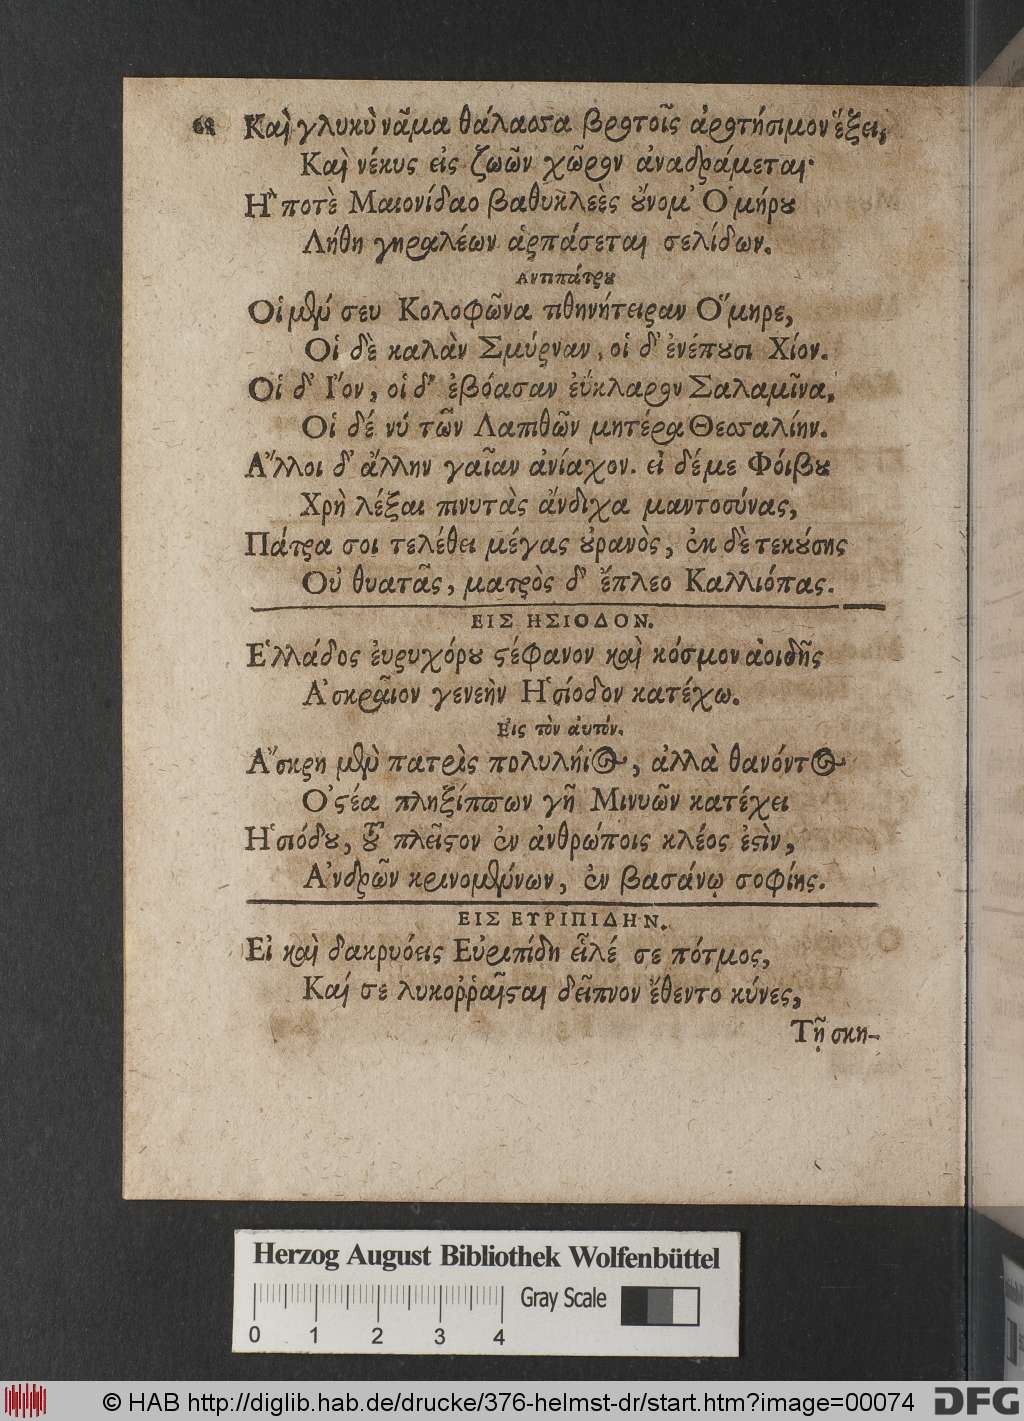 68 Καὶ γλυκὺ νᾶμα θάλασσα βροτοῖς ἀροτήσιμον ἕξει,
Καὶ νέκυς εἰς ζωῶν χῶρον ἀναδράμεται·
Ἢ ποτὲ Μαιονίδαο βαθυκλεὲς οὔνομ' Ὁμήρου
Λήθη γηραλέων ἁρπάσεται σελίδων.
Αντιπάτρου
Οἱ μέν σευ Κολοφῶνα τιθηνήτειραν Ὅμηρε,
Οἱ δὲ καλὰν Σμύρναν, οἱ δ' ἐνέπουσι Χίον.
Οἱ δ' Ἴον, οἱ δ' ἐβόασαν ἐύκλαρον Σαλαμῖνα,
Οἱ δέ νύ τῶν Λαπιθῶν μητέρα Θεσσαλίην.
Ἄλλοι δ' ἄλλην γαῖαν ἀνίαχον. εἰ δέ με Φοίβου
Χρὴ λέξαι πινυτὰς ἄνδιχα μαντοσύνας,
Πάτρα σοι τελέθει μέγας οὐρανὸς, ἐκ δὲ τεκούσης
Οὐ θνατᾶς, ματρὸς δ' ἔπλεο Καλλιόπας.
ΕΙΣ ΗΣΙΟΔΟΝ.
Ἑλλάδος ἐυρυχόρου στέφανον καὶ κόσμον ἀοιδῆς
Ἀσκραῖον γενεὴν Ἡσίοδον κατέχω.
Εἰς τὸν ἀυτόν.
Ἄσκρη μὲν πατρὶς πολυλήιος, ἀλλὰ θανόντος
Ὀστέα πληξίππων γῆ Μινυῶν κατέχει
Ἡσιόδου, τοῦ πλεῖστον ἐν ἀνθρώποις κλέος ἐστὶν,
Ἀνδρῶν κρινομένων, ἐν βασάνῳ σοφίης.
ΕΙΣ ΕΥΡΙΠΙΔΗΝ.
Εἰ καὶ δακρυόεις Εὐριπίδη εἷλέ σε πότμος,
Καί σε λυκοῤῥαῖσται δεῖπνον ἔθεντο κύνες,
Τῇ σκη-
Herzog August Bibliothek Wolfenbüttel
Gray Scale
0 1 2 3 4
© HAB http://diglib.hab.de/drucke/376-helmst-dr/start.htm?image=00074 DFG